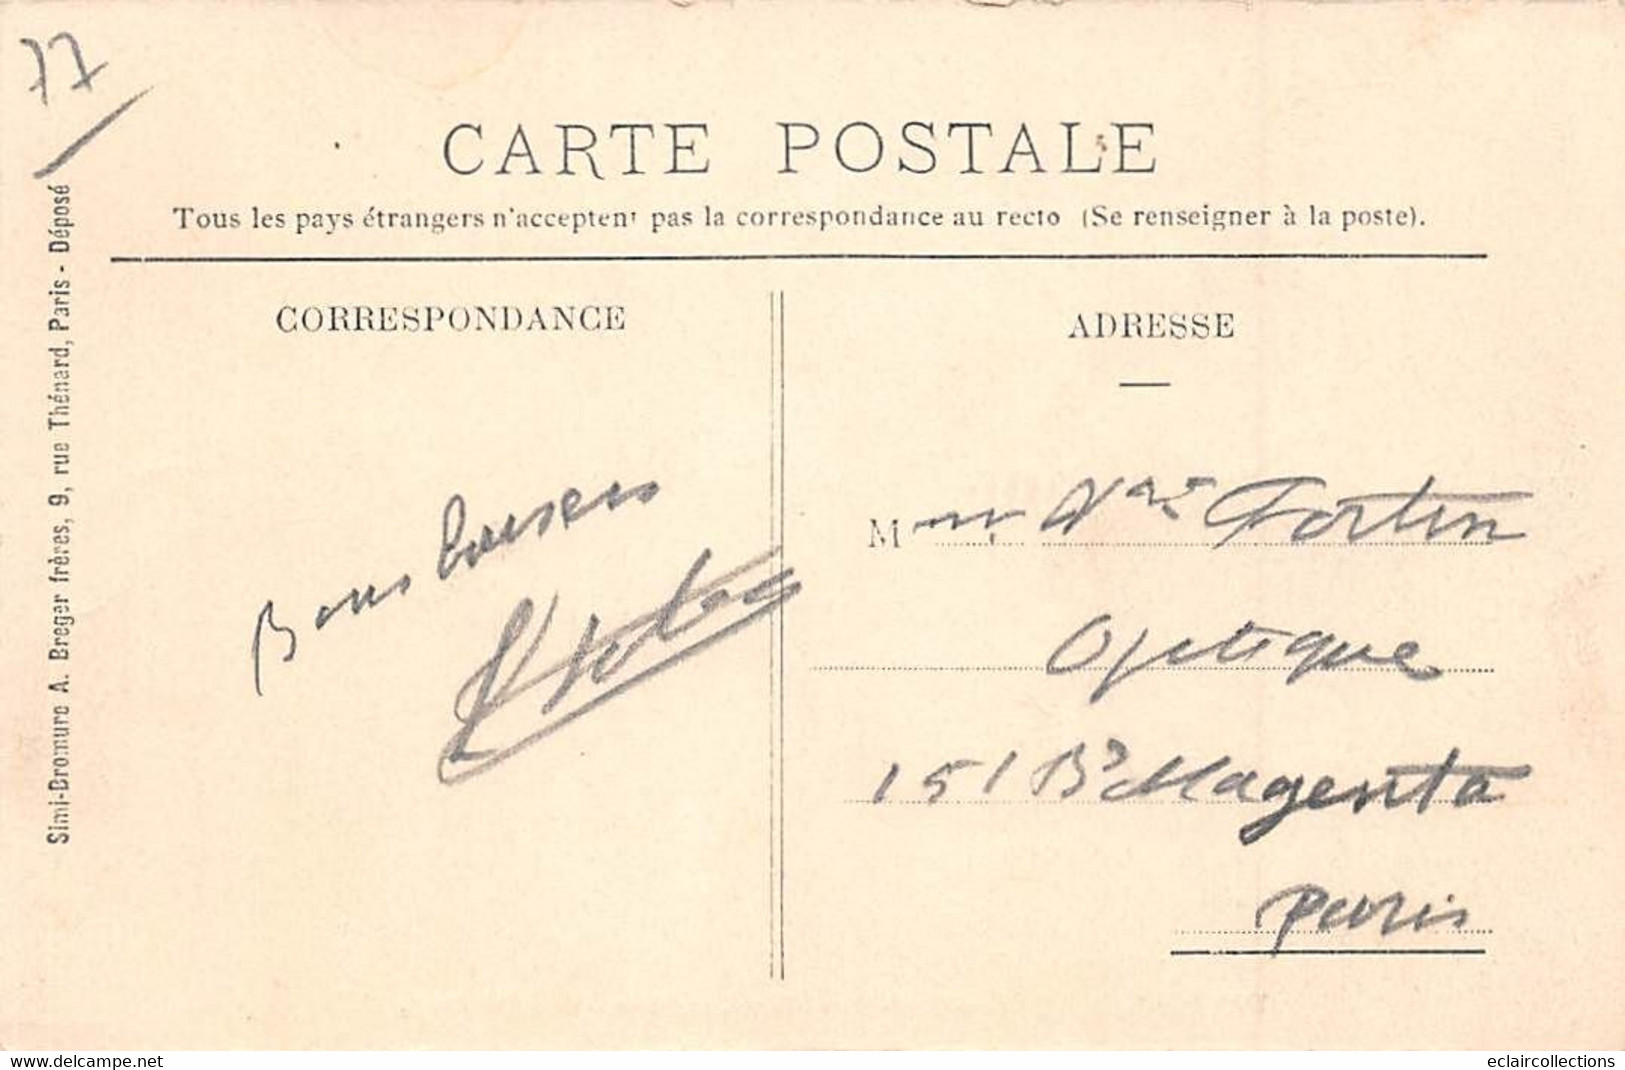 77
CARTE POSTALE
Tous les pays étrangers n'acceptent pas la correspondance au recto (Se renseigner à la poste).
Simi-Bromure A. Breger frères, 9, rue Thénard, Paris - Déposé
CORRESPONDANCE
Bons baisers
ADRESSE
M Fortin
Optique
151 Bd Magenta
Paris
www.delcampe.net
eclaircollections